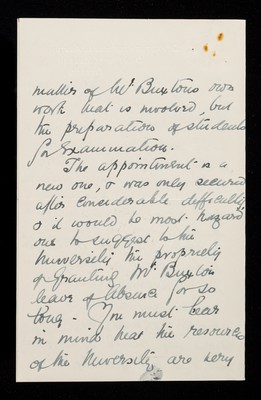 matter of Mr. Buxtons own
work that is involved, but
the preparation of students
for Examination.
The appointment is a
new one, & was only secured
after considerable difficulty,
& it would be most hazard
ous to suggest to the
University the propriety
of granting Mr. Buxton
leave of absence for so
long. You must bear
in mind that the resources
of the University are very